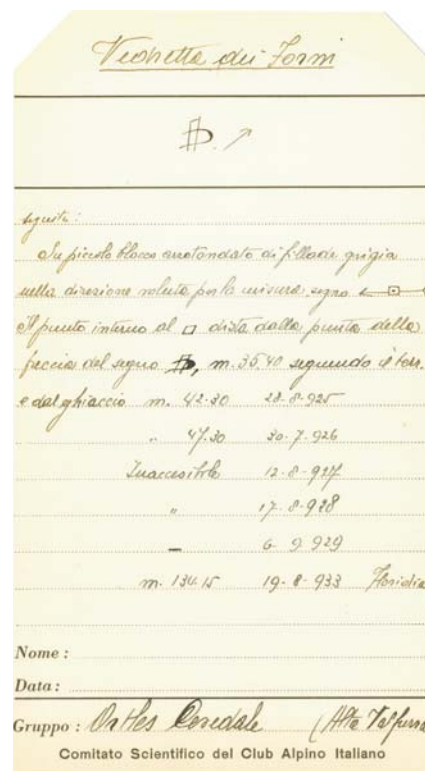 Vedretta dei Forni
seguito:
Su piccolo blocco arrotondato di fillade grigia
nella direzione voluta per la misura, segno ← ⊡ →
Il punto interno al □ dista dalla punta della
freccia del segno , m. 35,40 seguendo il terr.
e dal ghiaccio m. 42.30 28-8-925
" 47.30 30-7-926
Inaccessibile 12-8-927
" 17-8-928
— 6-9-929
m. 134.15 19-8-933
Nome :
Data :
Gruppo : Ortles Cevedale (Alta Valfurva
Comitato Scientifico del Club Alpino Italiano